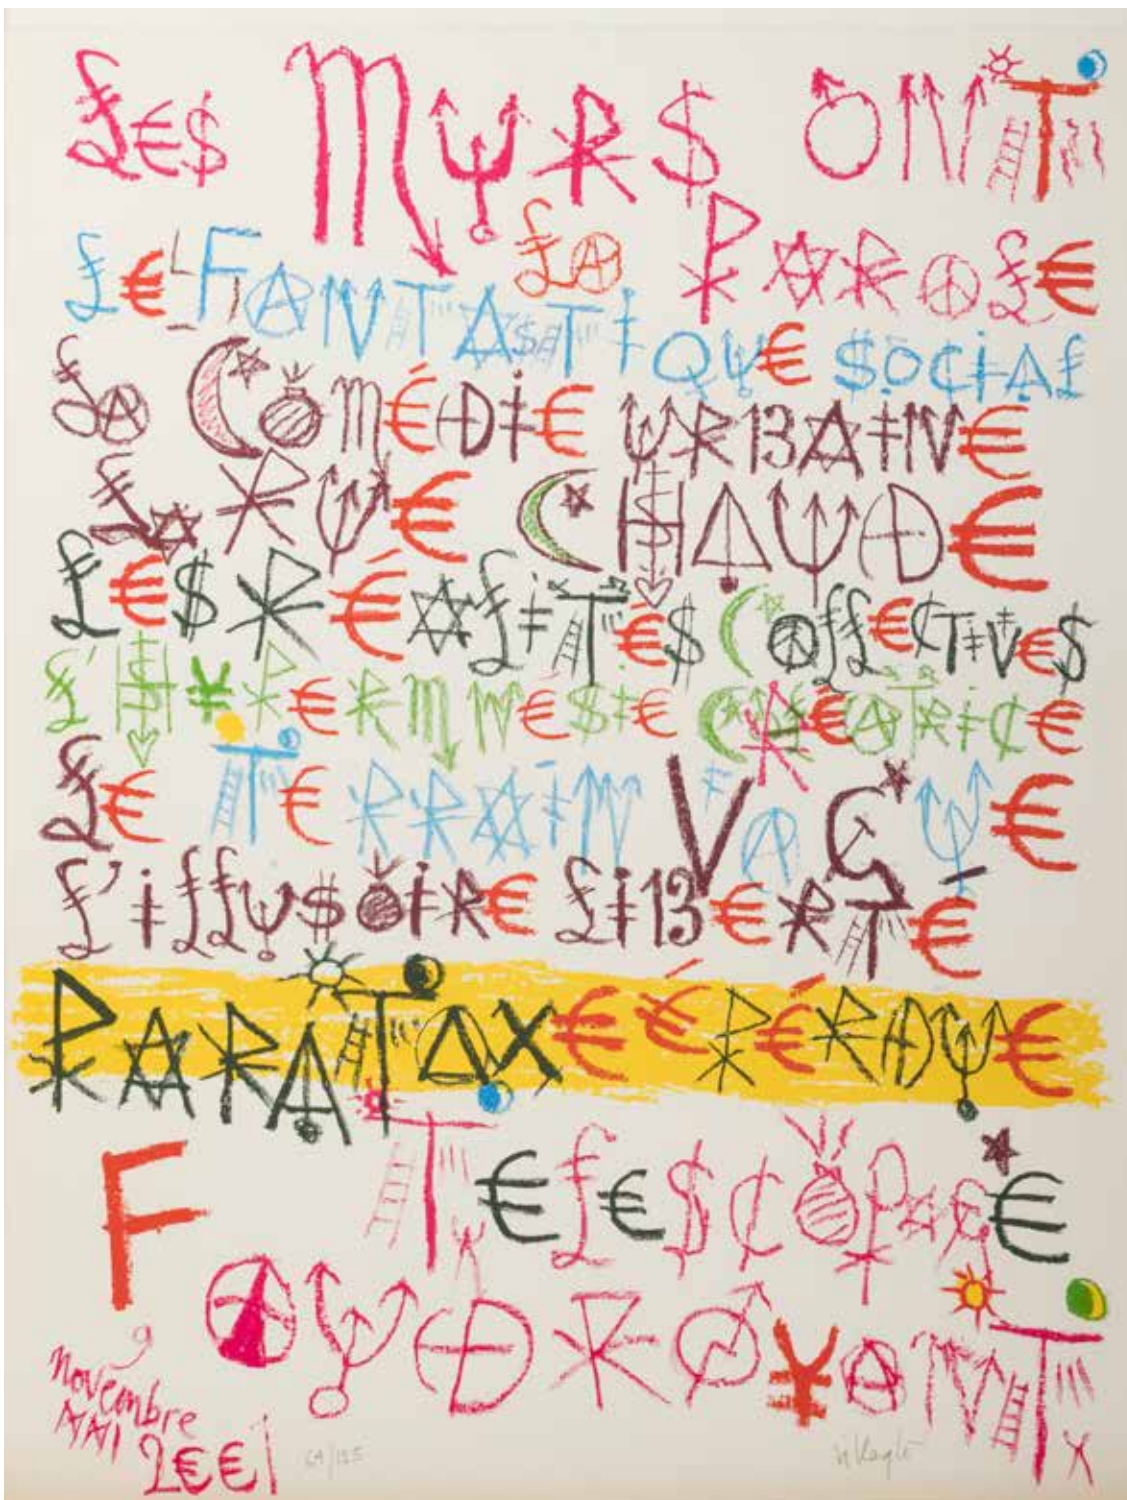 LES MURS ONT
LA PAROLE
LE FANTASTIQUE SOCIAL
LA COMÉDIE URBAINE
LA RUE CHAUDE
LES RÉALITÉS COLLECTIVES
L'HYPERMNESIE CRÉATRICE
LE TERRAIN VAGUE
L'ILLUSOIRE LIBERTE
PARATAXE ÉPÉRDUE
TELESCOPAGE
FOUDROYANT
9
Novembre
2€€1